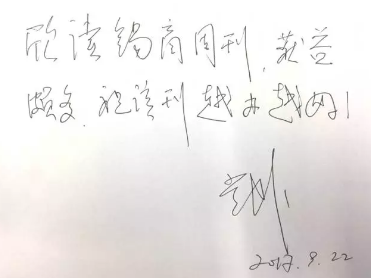 欣读锡商周刊，获益
颇多，祝该刊越办越好！
2017.9.22